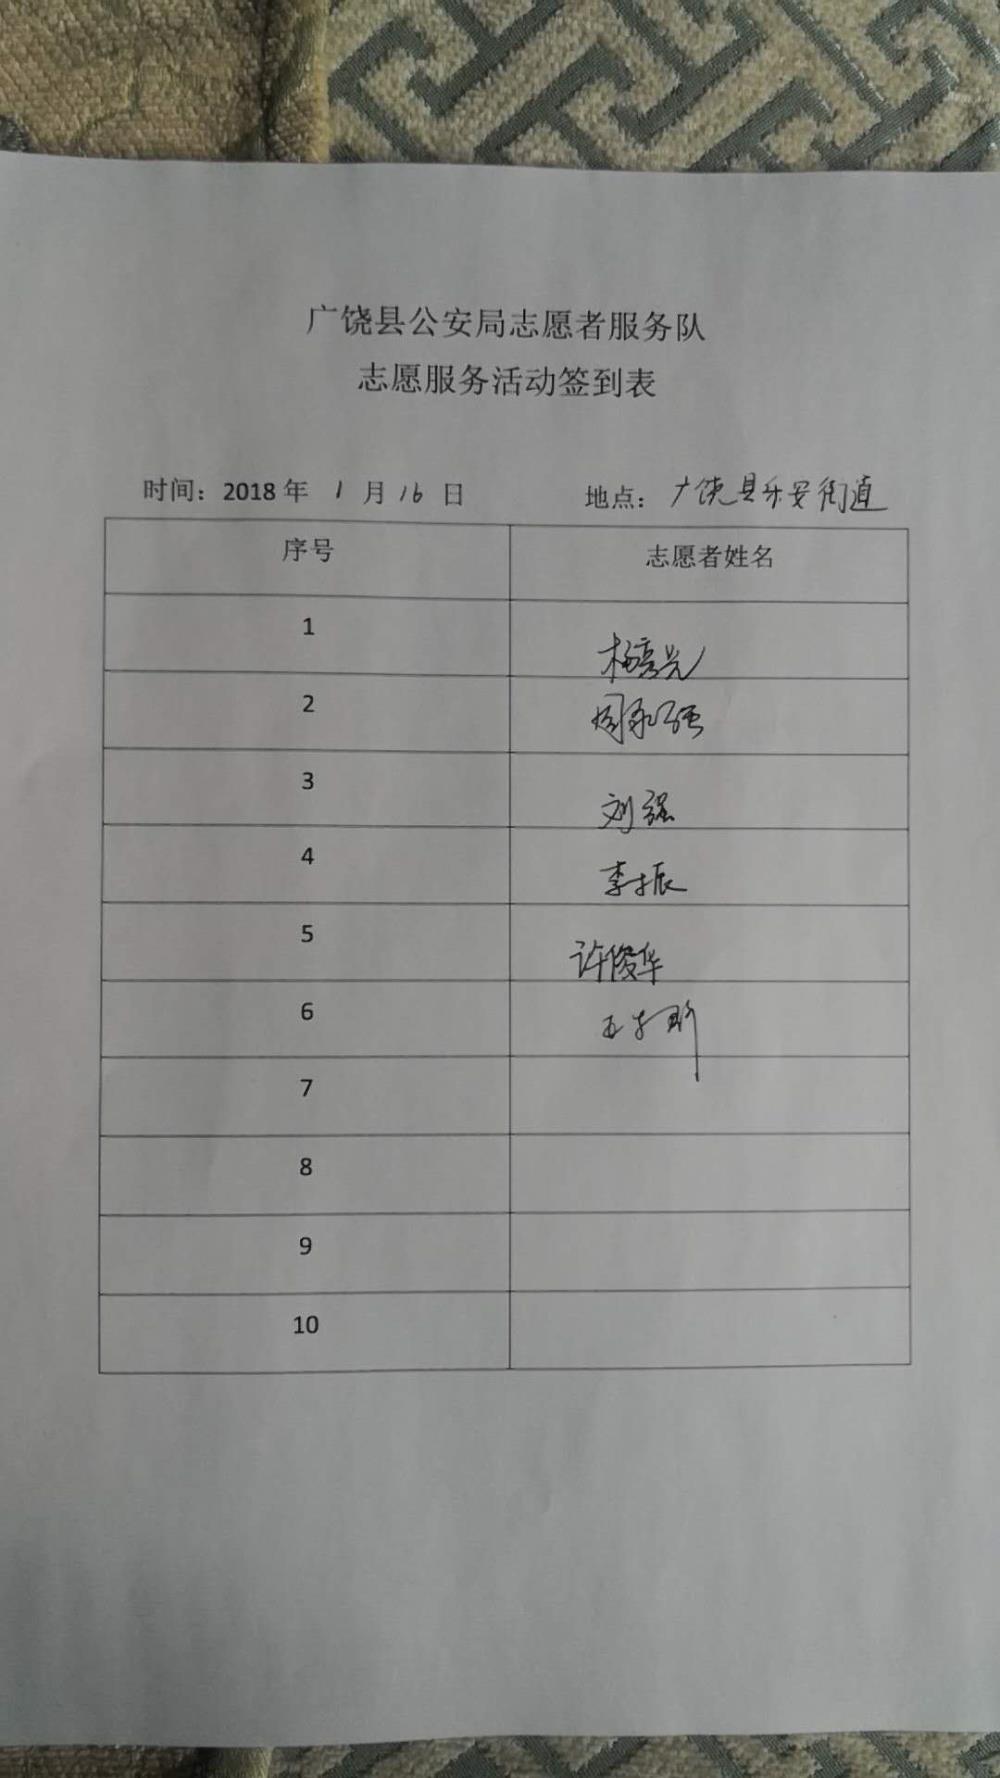 广饶县公安局志愿者服务队
志愿服务活动签到表
时间：2018 年 1 月 16 日 地点：广饶县乐安街道
序号 志愿者姓名
1 杨秀光
2 周永强
3 刘强
4 李振
5 许俊华
6
7
8
9
10